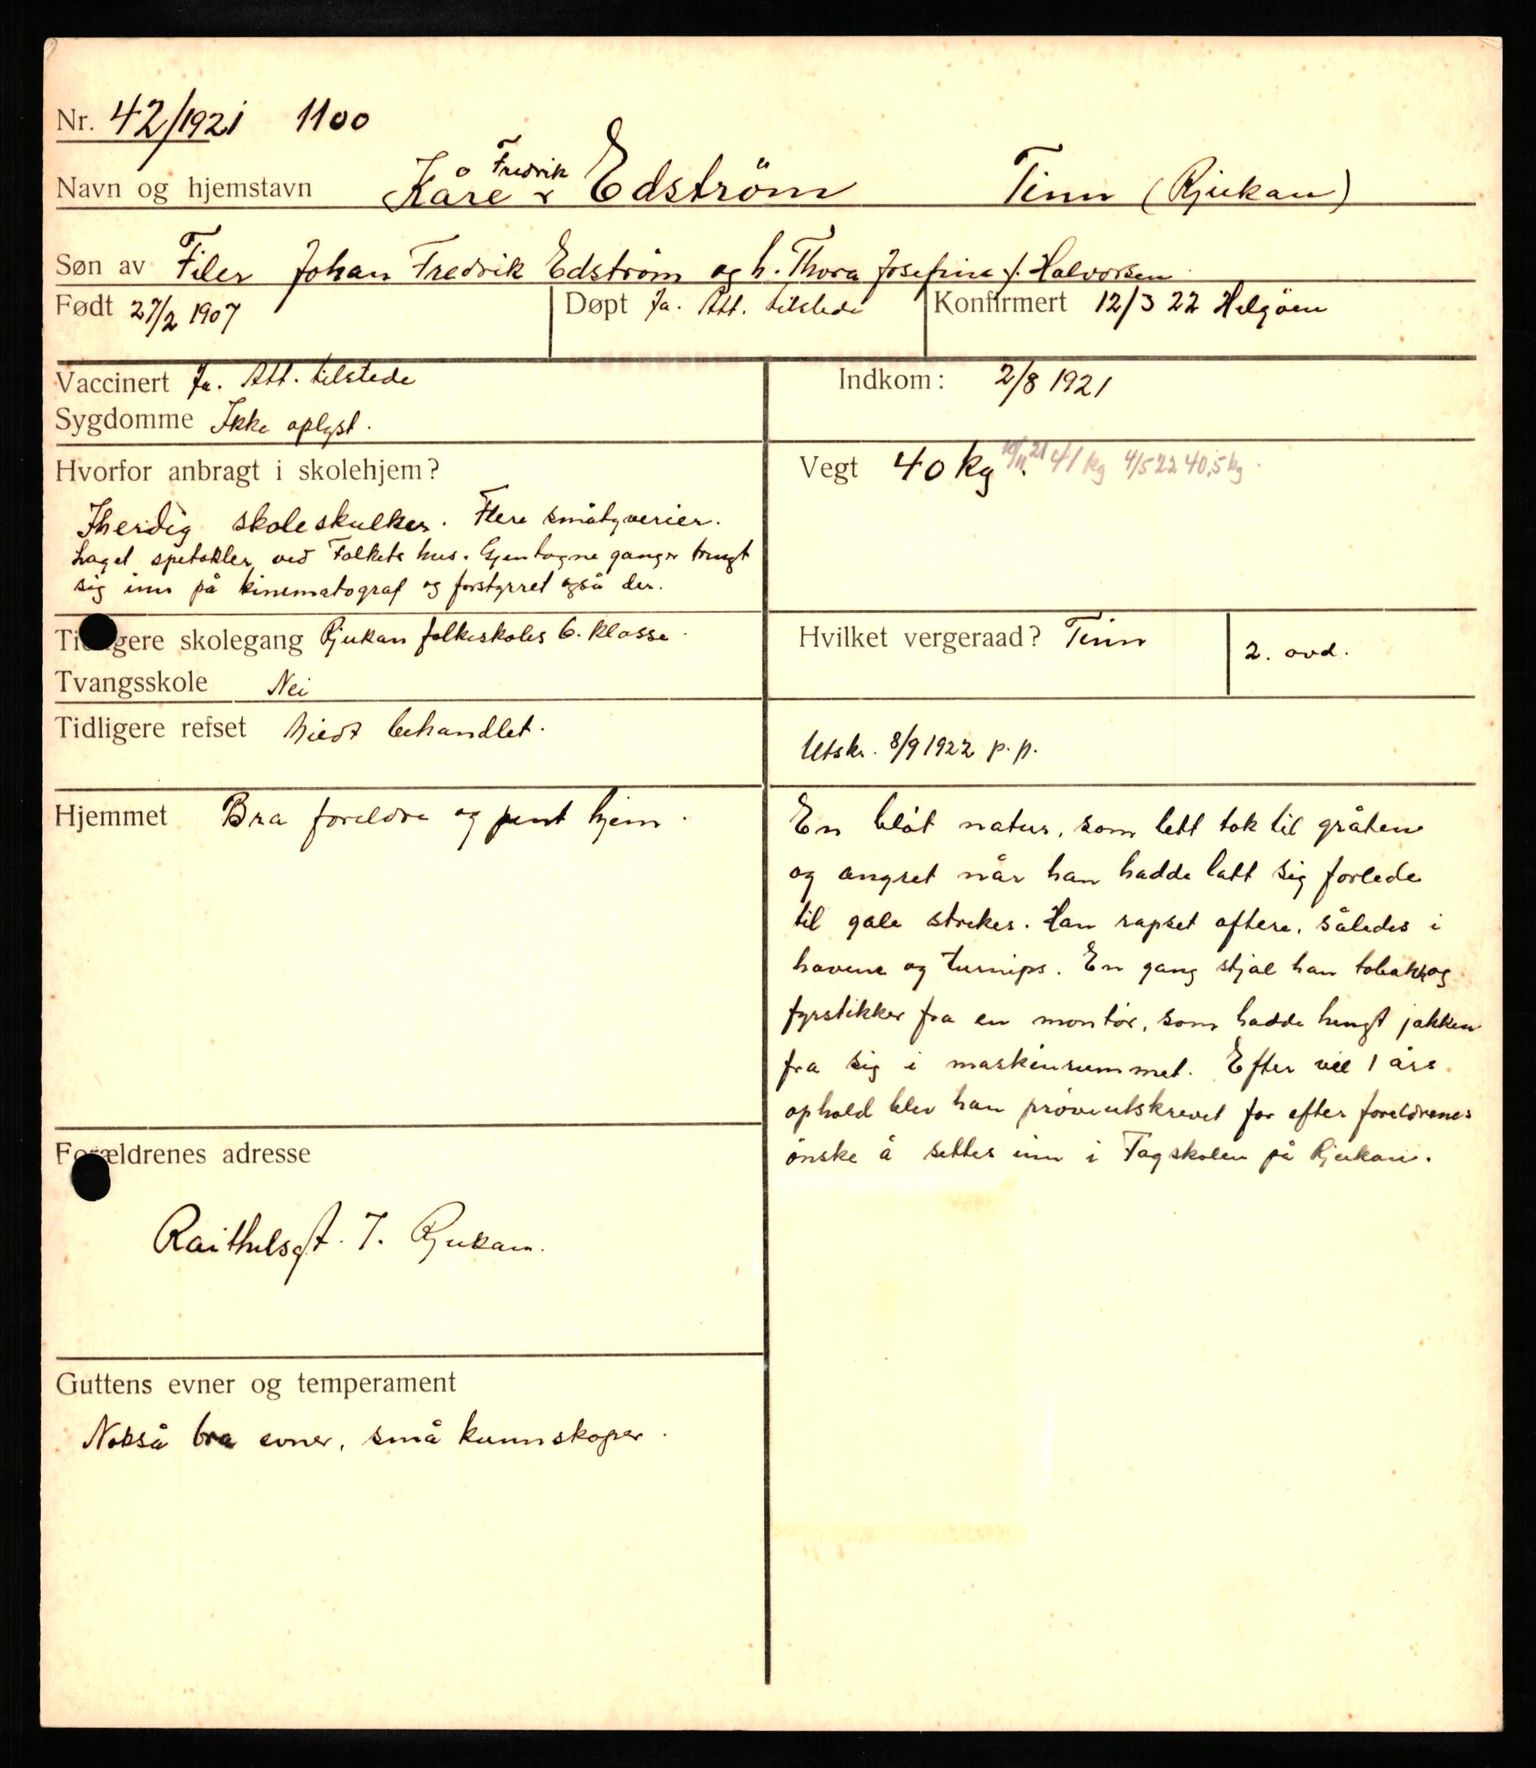 Nr. 42/1921 1100
Navn og hjemstavn Kåre Fredrik Edström Tinn (Rjukan)
Søn av Filer Johan Fredrik Edström og h. Thora Josefine f. Halvorsen
Født 27/2 1907 Døpt Ja. Att. tilstede Konfirmert 12/3 22 Helgöen
Vaccinert Ja. Att. tilstede
Sygdomme Ikke oplyst.
Indkom: 2/8 1921
Hvorfor anbragt i skolehjem?
Iherdig skoleskulker. Flere småtyverier.
Laget spetakler ved Folkets hus. Gjentagne ganger trengt
sig inn på kinematograf og forstyrret også der.
Vegt 40 kg. 10/11 21 41 kg 4/5 22 40,5 kg.
Tidligere skolegang Rjukan folkeskoles 6. klasse.
Tvangsskole Nei
Hvilket vergeraad? Tinn 2. avd.
Tidligere refset Mildt behandlet.
Utskr. 8/9 1922 p.p.
Hjemmet Bra foreldre og pent hjem.
Forældrenes adresse
Raithelsgt. 7. Rjukan.
Guttens evner og temperament
Nokså bra evner, små kunnskaper.
En blöt natur, som lett tok til gråten
og angret når han hadde latt sig forlede
til gale streker. Han rapset oftere, således i
havene og turnips. En gang stjal han tobakk og
fyrstikker fra en montör, som hadde hengt jakken
fra sig i maskinrummet. Efter vel 1 års
ophold blev han pröveutskrevet for efter foreldrenes
önske å settes inn i Fagskolen på Rjukan.